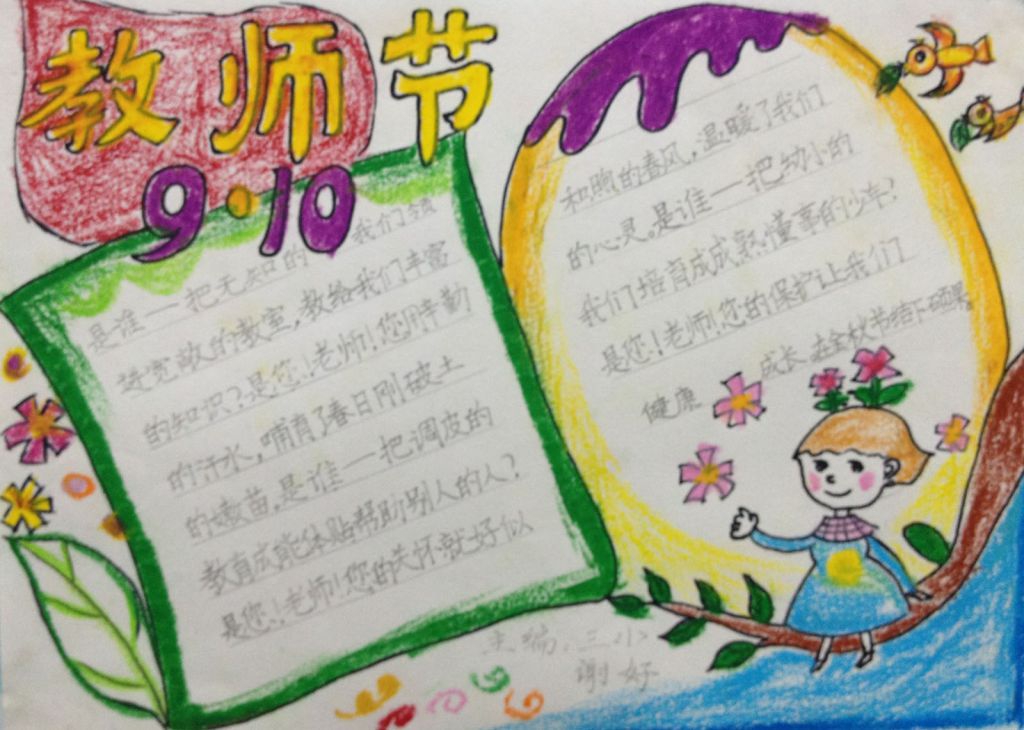 教师节
9·10
是谁——把无知的我们领
进宽敞的教室，教给我们丰富
的知识？是您！老师！您用辛勤
的汗水，哺育了春日刚破土
的嫩苗，是谁——把调皮的
教育成能体贴帮助别人的人？
是您！老师！您的关怀就好似
和煦的春风，温暖了我们
的心灵。是谁——把幼小的
我们培育成成熟懂事的少年？
是您！老师！您的保护让我们
健康成长在金秋节结下硕果
主编：三小
谢好